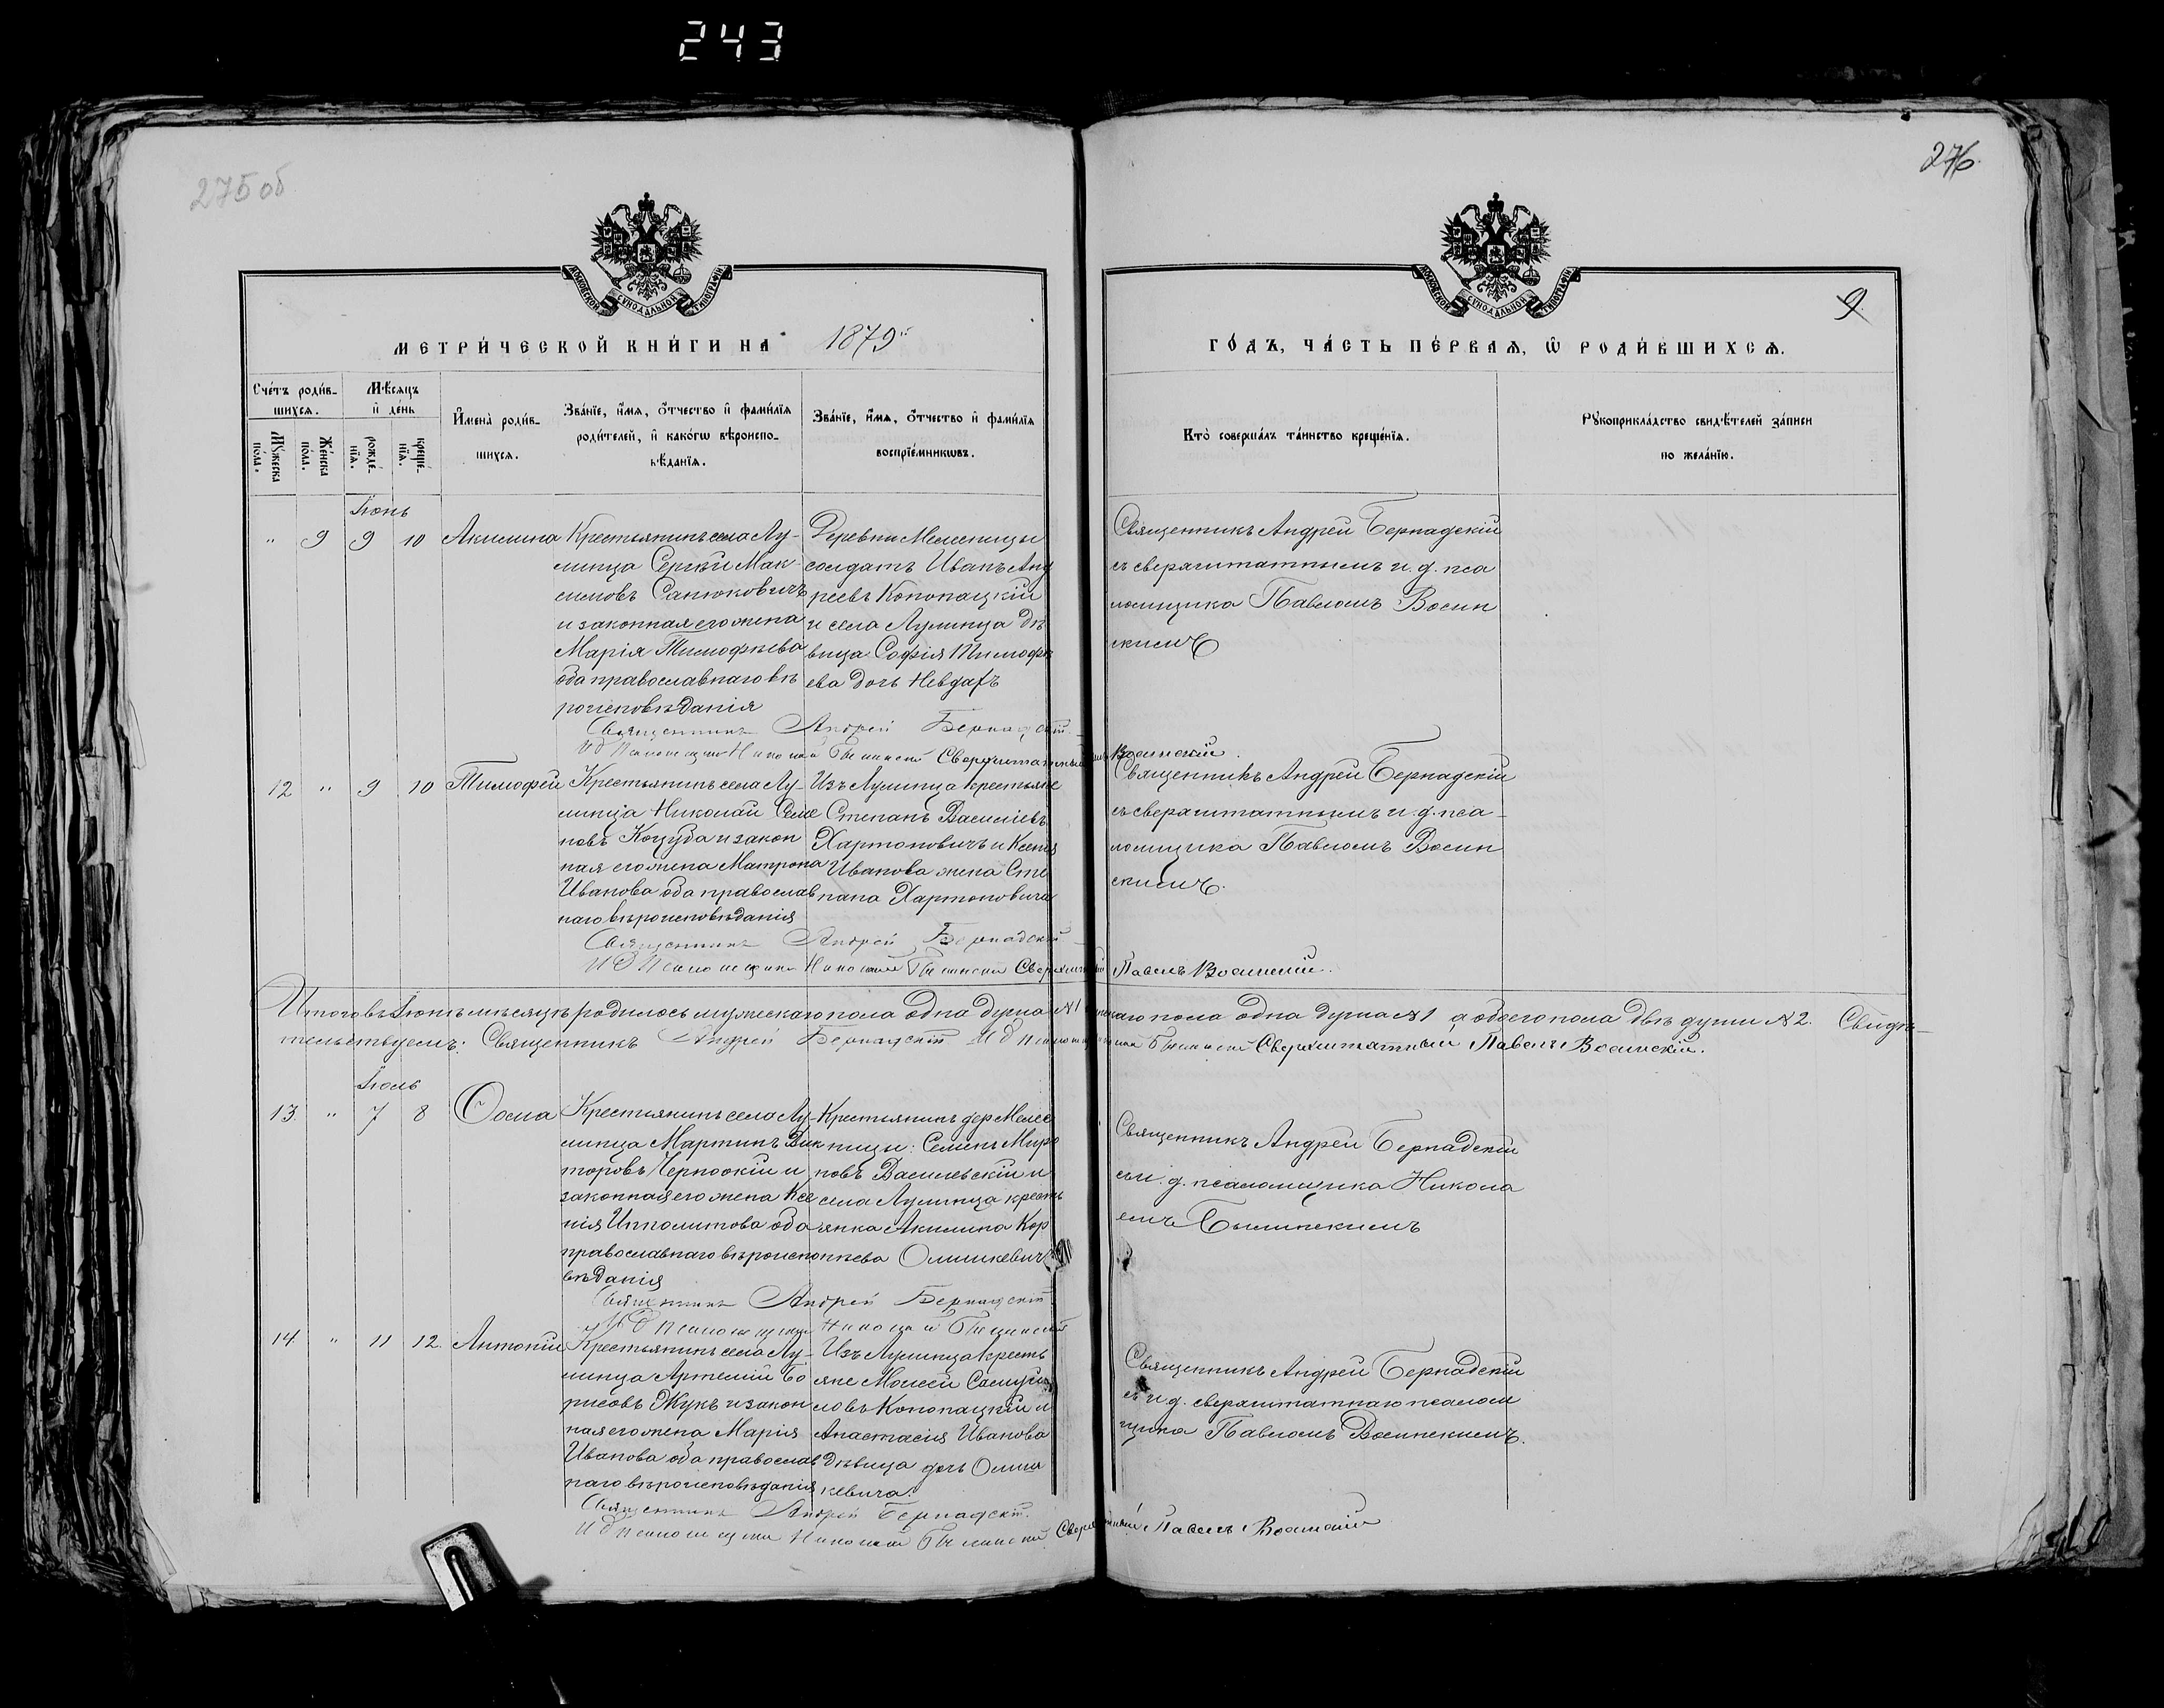 243
275 об
276.
МОСКОВСКОЙ СѴНОДАЛЬНОЙ ТИПОГРАФІИ
МОСКОВСКОЙ СѴНОДАЛЬНОЙ ТИПОГРАФІИ
9.
МЕТРИ́ЧЕСКОЙ КНИ́ГИ НА 1879й
ГО́ДЪ, ЧА́СТЬ ПЕ́РВАѦ, Ѡ РОДИ́ВШИХСѦ.
Сче́тъ роди́в-
шихсѧ.
Мѣ́сѧцъ
и҆ де́нь
Мꙋ́жеска
по́ла.
Же́нска
по́ла.
рожде́-
нїѧ.
креще́-
нїѧ.
И҆мена̀ роди́в-
шихсѧ.
Зва́нїе, и҆́мѧ, ѻ҆́тчество и҆ фами́лїѧ
роди́телей, и҆ како́гѡ вѣроиспо-
вѣ́данїѧ.
Зва́нїе, и҆́мѧ, ѻ҆́тчество и҆ фами́лїѧ
воспрїе́мникѡвъ.
Кто̀ соверша́лъ та́инство креще́нїѧ.
Рꙋкоприкла́дство свидѣ́телей за́писи
по жела́нїю.
Іюнь
" 9 9 10 Акилина
Крестьянинъ села Лу-
нинца Сергѣй Мак-
симовъ Санюковичъ
и законная его жена
Марія Тимофѣева
оба православнаго вѣ
роисповѣданія
Деревни Мелесницы
солдатъ Иванъ Анд
реевъ Конопацкій
и села Лунинца дѣ
вица Софія Тимофѣ
ева дочь Невдахъ
Священникъ Андрей Бернадскій
съ сверхштатнымъ и. д. пса
ломщика Павломъ Восин
скимъ
Священникъ Андрей Бернадскій
И д Псаломщика Николай Сверхштатный Восинскій.
12 " 9 10 Тимофей
Крестьянинъ села Лу-
нинца Николай Семе
новъ Коцуба и закон
ная его жена Матрона
Иванова оба православ
наго вѣроисповѣданія
Изъ Лунинца крестьяне
Степанъ Василіевъ
Хартоновичъ и Ксенія
Иванова жена Сте
пана Хартоновича
Священникъ Андрей Бернадскій
съ сверхштатнымъ и. д. пса-
ломщика Павломъ Восин
скимъ.
Священникъ Андрей Бернадскій
И д Псаломщика Николай Павелъ Восинскій.
Итого въ Іюнѣ мѣсяцѣ родилось мужескаго пола одна душа №1 женскаго пола одна душа №1 а обоего пола двѣ души №2. Свидѣ-
тельствуемъ: Священникъ Андрей Бернадскій И д Псаломщика Сверхштатный Павелъ Восинскій.
Іюль
13. " 7 8 Ѳома
Крестьянинъ села Лу-
нинца Мартинъ Вик
торовъ Чернокій и
законная его жена Ксе
нія Ипполитова оба
православнаго вѣроиспо
вѣданія
Крестьянинъ дер Мелес
ницы: Семенъ Миро
новъ Василевскій и
села Лунинца кресть
янка Акилина Кор
нѣева Олишкевичъ
Священникъ Андрей Бернадскій
съ и. д. псаломщика Никола
емъ
Священникъ Андрей Бернадскій
И д Псаломщика Николай
14 " 11 12. Антоній
Крестьянинъ села Лу-
нинца Артемій Бо
рисовъ Жукъ и закон
ная его жена Марія
Иванова оба православ
наго вѣроисповѣданія
Изъ Лунинца кресть
яне Моисей Самуи
ловъ Конопацкій и
Анастасія Иванова
дѣвица дочь Олиш
кевича.
Священникъ Андрей Бернадскій
съ и д. сверхштатнаго псалом
щика Павломъ Восинскимъ.
Священникъ Андрей Бернадскій.
И д Псаломщика Николай Павелъ Восинскій